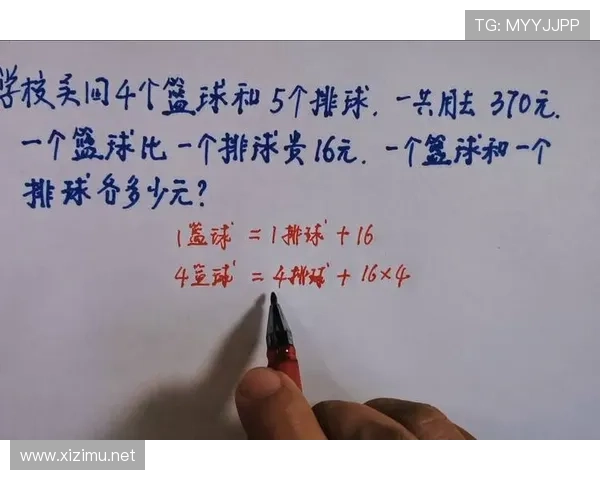 TG: MYYJJPP
学校买回4个篮球和5个排球，一共用去370元，
一个篮球比一个排球贵16元，一个篮球和一个
排球各多少元？
1篮球=1排球+16
4篮球=4排球+16×4
www.xizimu.net